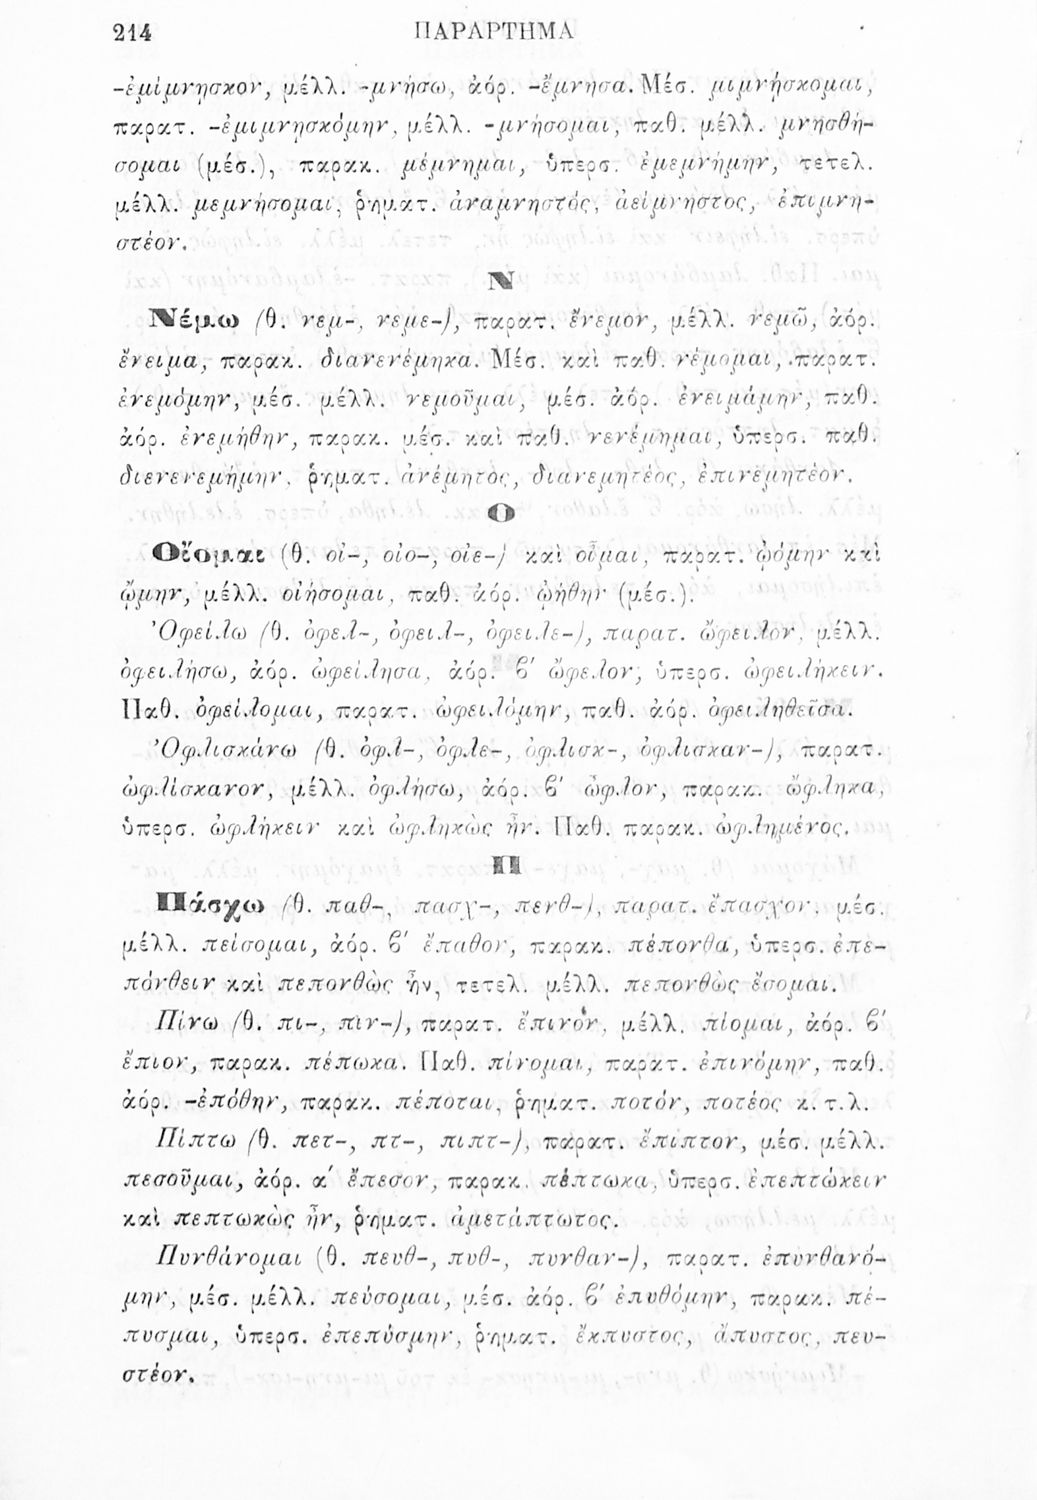 214 ΠΑΡΑΡΤΗΜΑ
-ἐμίμνησκον, μέλλ. -μνήσω, ἀόρ. -ἔμνησα. Μέσ. μιμνήσκομαι,
παρατ. -ἐμιμνησκόμην, μέλλ. -μνήσομαι, παθ. μέλλ. μνησθή-
σομαι (μέσ.), παρακ. μέμνημαι, ὑπερσ. ἐμεμνήμην, τετελ.
μέλλ. μεμνήσομαι, ῥηματ. ἀναμνηστός, ἀείμνηστος, ἐπιμνη-
στέον.
Ν
Νέμω (θ. νεμ-, νεμε-), παρατ. ἔνεμον, μέλλ. νεμῶ, ἀόρ.
ἔνειμα, παρακ. διανενέμηκα. Μέσ. καὶ παθ. νέμομαι, παρατ.
ἐνεμόμην, μέσ. μέλλ. νεμοῦμαι, μέσ. ἀόρ. ἐνειμάμην, παθ.
ἀόρ. ἐνεμήθην, παρακ. μέσ. καὶ παθ. νενέμημαι, ὑπερσ. παθ.
διενενεμήμην, ῥηματ. ἀνέμητος, διανεμητέος, ἐπινεμητέον.
Ο
Οἴομαι (θ. οἰ-, οἰο-, οἰε-) καὶ οἶμαι, παρατ. ᾠόμην καὶ
ᾤμην, μέλλ. οἰήσομαι, παθ. ἀόρ. ᾠήθην (μέσ.).
Ὀφείλω (θ. ὀφελ-, ὀφειλ-, ὀφειλε-), παρατ. ὤφειλον, μέλλ.
ὀφειλήσω, ἀόρ. ὠφείλησα, ἀόρ. β' ὤφελον, ὑπερσ. ὠφειλήκειν.
Παθ. ὀφείλομαι, παρατ. ὠφειλόμην, παθ. ἀόρ. ὀφειληθεῖσα.
Ὀφλισκάνω (θ. ὀφλ-, ὀφλε-, ὀφλισκ-, ὀφλισκαν-), παρατ.
ὠφλίσκανον, μέλλ. ὀφλήσω, ἀόρ. β' ὦφλον, παρακ. ὤφληκα,
ὑπερσ. ὠφλήκειν καὶ ὠφληκὼς ἦν. Παθ. παρακ. ὠφλημένος.
Π
Πάσχω (θ. παθ-, πασχ-, πενθ-), παρατ. ἔπασχον, μέσ.
μέλλ. πείσομαι, ἀόρ. β' ἔπαθον, παρακ. πέπονθα, ὑπερσ. ἐπε-
πόνθειν καὶ πεπονθὼς ἦν, τετελ. μέλλ. πεπονθὼς ἔσομαι.
Πίνω (θ. πι-, πιν-), παρατ. ἔπινον, μέλλ. πίομαι, ἀόρ. β'
ἔπιον, παρακ. πέπωκα. Παθ. πίνομαι, παρατ. ἐπινόμην, παθ.
ἀόρ. -ἐπόθην, παρακ. πέποται, ῥηματ. ποτόν, ποτέος κ.τ.λ.
Πίπτω (θ. πετ-, πτ-, πιπτ-), παρατ. ἔπιπτον, μέσ. μέλλ.
πεσοῦμαι, ἀόρ. α' ἔπεσον, παρακ. πέπτωκα, ὑπερσ. ἐπεπτώκειν
καὶ πεπτωκὼς ἦν, ῥηματ. ἀμετάπτωτος.
Πυνθάνομαι (θ. πευθ-, πυθ-, πυνθαν-), παρατ. ἐπυνθανό-
μην, μέσ. μέλλ. πεύσομαι, μέσ. ἀόρ. β' ἐπυθόμην, παρακ. πέ-
πυσμαι, ὑπερσ. ἐπεπύσμην, ῥηματ. ἔκπυστος, ἄπυστος, πευ-
στέον.